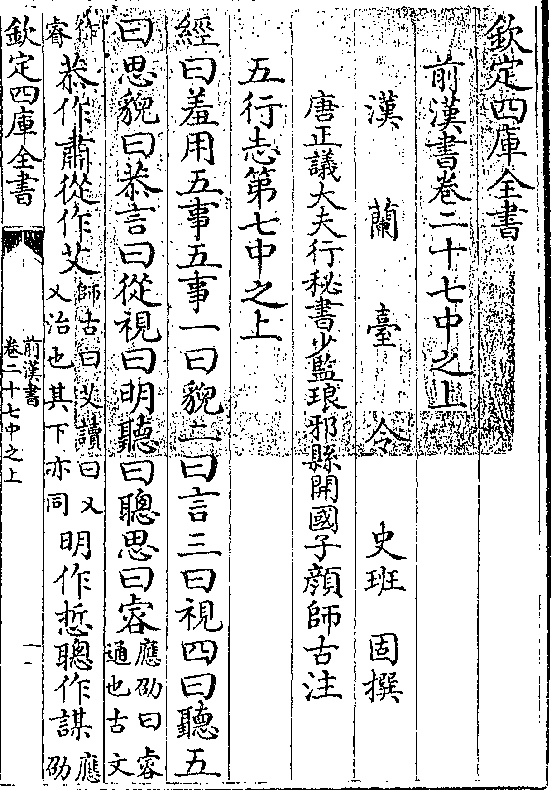 欽定四庫全書
前漢書卷二十七中之上
漢蘭臺令史班固撰
唐正議大夫行秘書少監琅邪縣開國子顔師古注
五行志第七中之上
經曰羞用五事五事一曰貌二曰言三曰視四曰聽五
曰思貌曰恭言曰從視曰明聽曰聰思曰睿應劭曰睿通也古文
作睿恭作肅從作艾師古曰艾讀曰乂乂治也其下亦同明作悊聰作謀應劭
欽定四庫全書
前漢書
卷二十七中之上
一